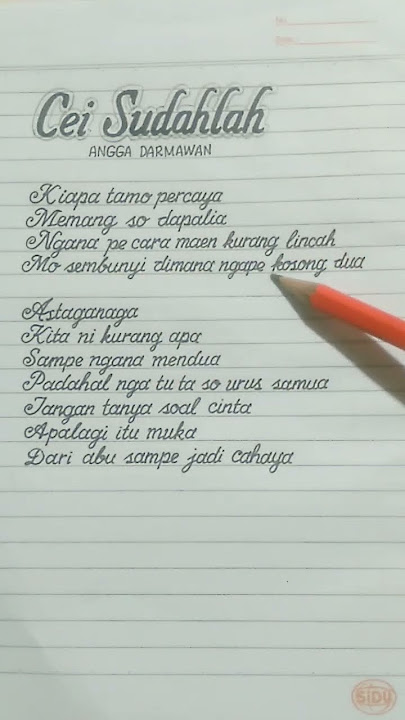 No.
Date.
Cei Sudahlah
ANGGA DARMAWAN
Kiapa tamo percaya
Memang so dapalia
Ngana pe cara maen kurang lincah
Mo sembunyi dimana ngape kosong dua
Astaganaga
Kita ni kurang apa
Sampe ngana mendua
Padahal nga tu ta so urus samua
Jangan tanya soal cinta
Apalagi itu muka
Dari abu sampe jadi cahaya
SIDU